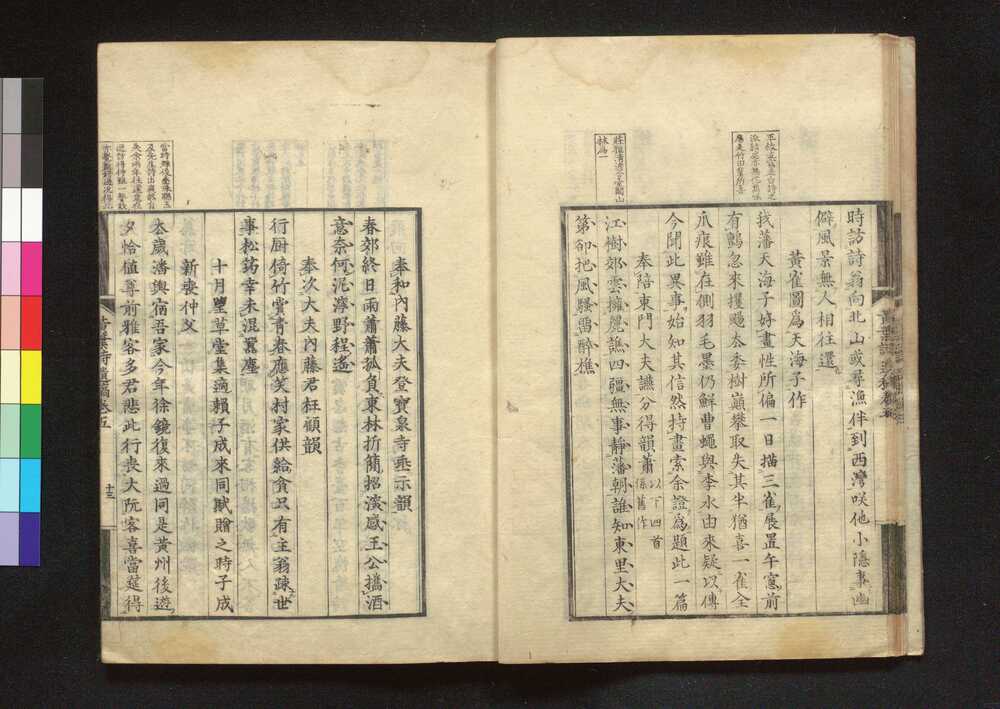 時訪詩翁向北山或尋漁伴到西灣咲他小隱事幽
僻風景無人相往還
黃雀圖爲天海子作
我藩天海子好畫性所偏一日描三雀展置午窻前
有鸇忽來攫颺去委樹巓攀取失其半猶喜一雀全
爪痕雖在側羽毛墨仍鮮曹蠅與李水由來疑以傳
今聞此異事始知其信然持畫索余證爲題此一篇
奉陪東門大夫讌分得韻蕭 以下四首係舊作
江樹郊雲擁麗譙四疆無事靜藩朝誰知東里大夫
第卻把風騷畱醉樵
奉和內藤大夫登寶泉寺垂示韻
春郊終日雨蕭蕭孤負東林折簡招淺感王公攜酒
意奈何泥濘野程遙
奉次大夫內藤君枉顧韻
行厨倚竹賞青春應笑村家供給貧只有主翁疎世
事松筠幸未混囂塵
十月朢草堂集適賴子成來同賦贈之時子成
新喪仲父
去歲潘輿宿吾家今年徐鏡復來過同是黃州後遊
夕恰値尊前雅客多君悲此行喪大阮客喜當筵得
十三